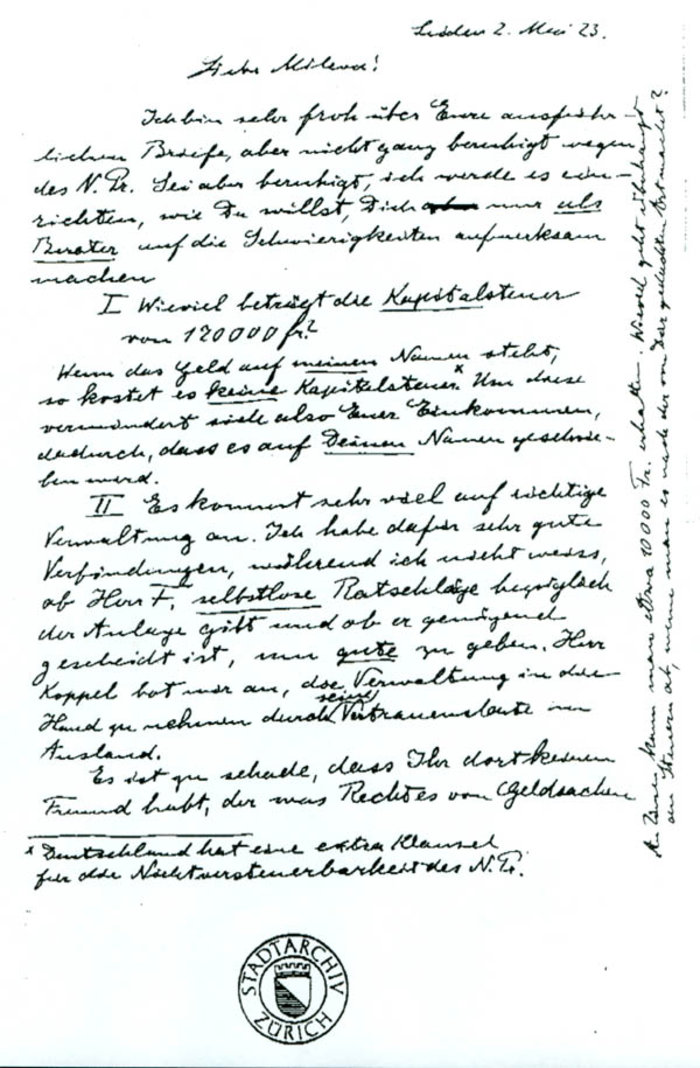 Leiden 2. Mai 23.
Liebe Mileva!
Ich bin sehr froh über Eure ausführ-
lichen Briefe, aber nicht ganz beruhigt wegen
des N. Pr. Sei aber beruhigt, ich werde es ein-
richten, wie Du willst, Dich nur als
Berater auf die Schwierigkeiten aufmerksam
machen
I Wieviel beträgt die Kapitalsteuer
von 120000 fr.?
Wenn das Geld auf meinen Namen steht,
so kostet es keine Kapitalsteuer.x Um diese
vermindert sich also Euer Einkommen,
dadurch, dass es auf Deinen Namen geschrie-
ben wird.
II Es kommt sehr viel auf richtige
Verwaltung an. Ich habe dafür sehr gute
Verbindungen, während ich nicht weiss,
ob Herr F. selbstlose Ratschläge bezüglich
der Anlage gibt und ob er genügend
gescheidt ist, um gute zu geben. Herr
Koppel bot mir an, die Verwaltung in die
Hand zu nehmen durch seine Vertrauensleute im
Ausland.
Es ist zu schade, dass Ihr dort keinen
Freund habt, der was Rechtes von Geldsachen
x Deutschland hat eine extra Klausel
für die Nichtversteuerbarkeit des N. Pr.
An Zinsen kann man etwa 10000 Fr. erhalten. Wieviel geht überhaupt
an Steuern ab, wenn man es nach der von Dir gedachten Art macht?
STADTARCHIV
ZÜRICH